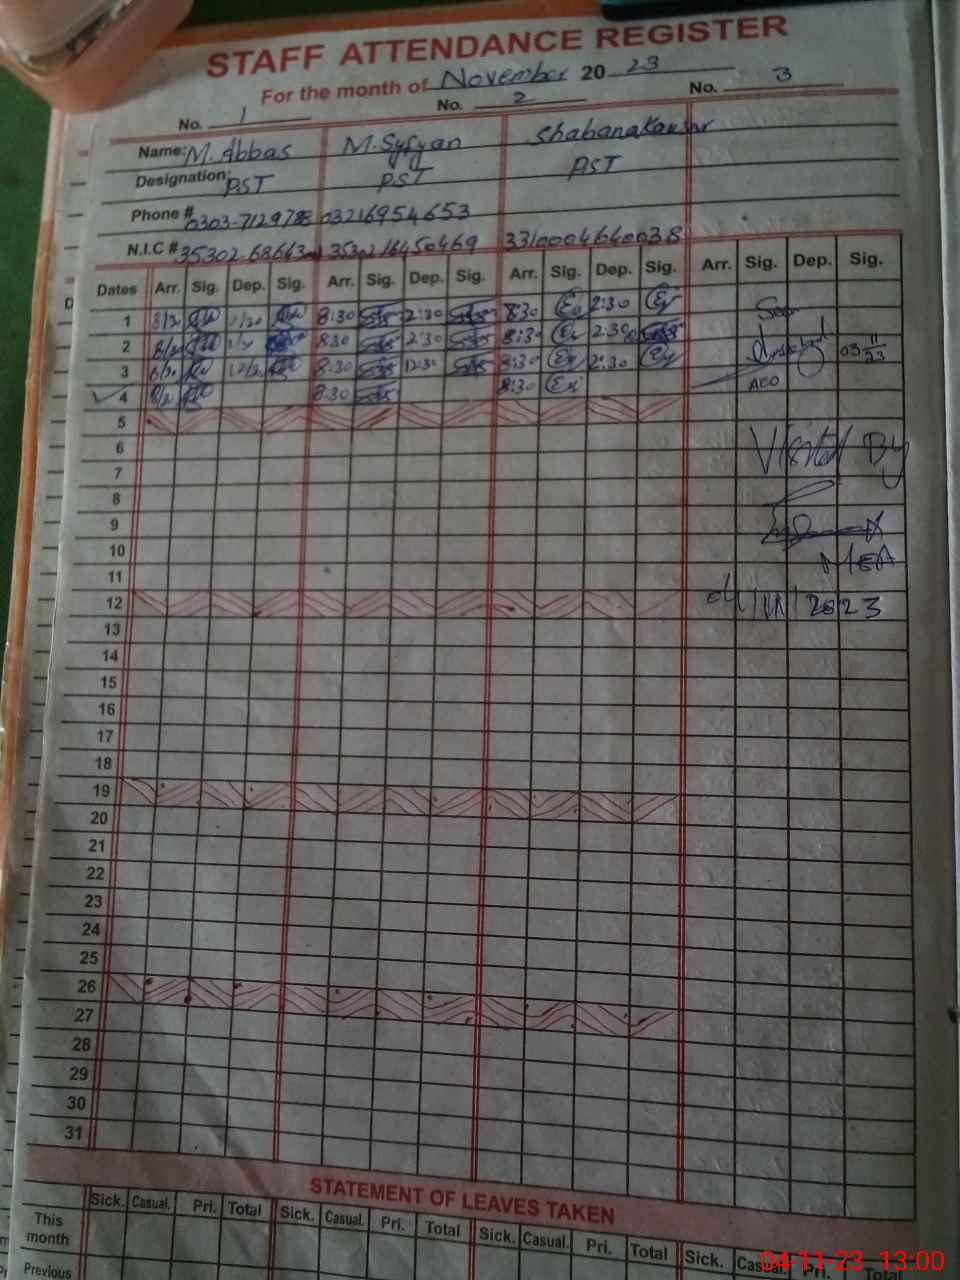 STAFF ATTENDANCE REGISTER
For the month of November 20 23
No. 1 No. 2 No. 3
Name: M. Abbas M. Syfyan Shabanakausar
Designation: PST PST PST
Phone # 0303-7129788 03216954653
N.I.C # 35302-68643 3530216450469 3310004640038
Dates Arr. Sig. Dep. Sig. Arr. Sig. Dep. Sig. Arr. Sig. Dep. Sig. Arr. Sig. Dep. Sig.
1 8:30 2:30 8:30 2:30 Seen
2 8:30 2:30 8:30 2:30 03 11/23
3 8:30 12:30 8:30 2:30 AEO
4 8:30 8:30
5
6 Visited By
7
8
9
10
11 MEA
12 04/11/2023
13
14
15
16
17
18
19
20
21
22
23
24
25
26
27
28
29
30
31
STATEMENT OF LEAVES TAKEN
Sick. Casual. Pri. Total Sick. Casual. Pri. Total Sick. Casual. Pri. Total Sick. Casual. Pri. Total
This month
Previous
04-11-23 13:00